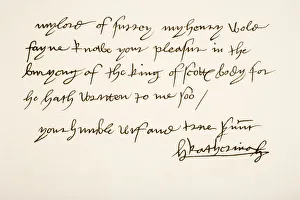 mylord of surrey my henry wold
fayne knowe your pleasur in the
buryeng of the king of scotts body for
he hath written to me soo /
your humble wif and true servant
Katherina